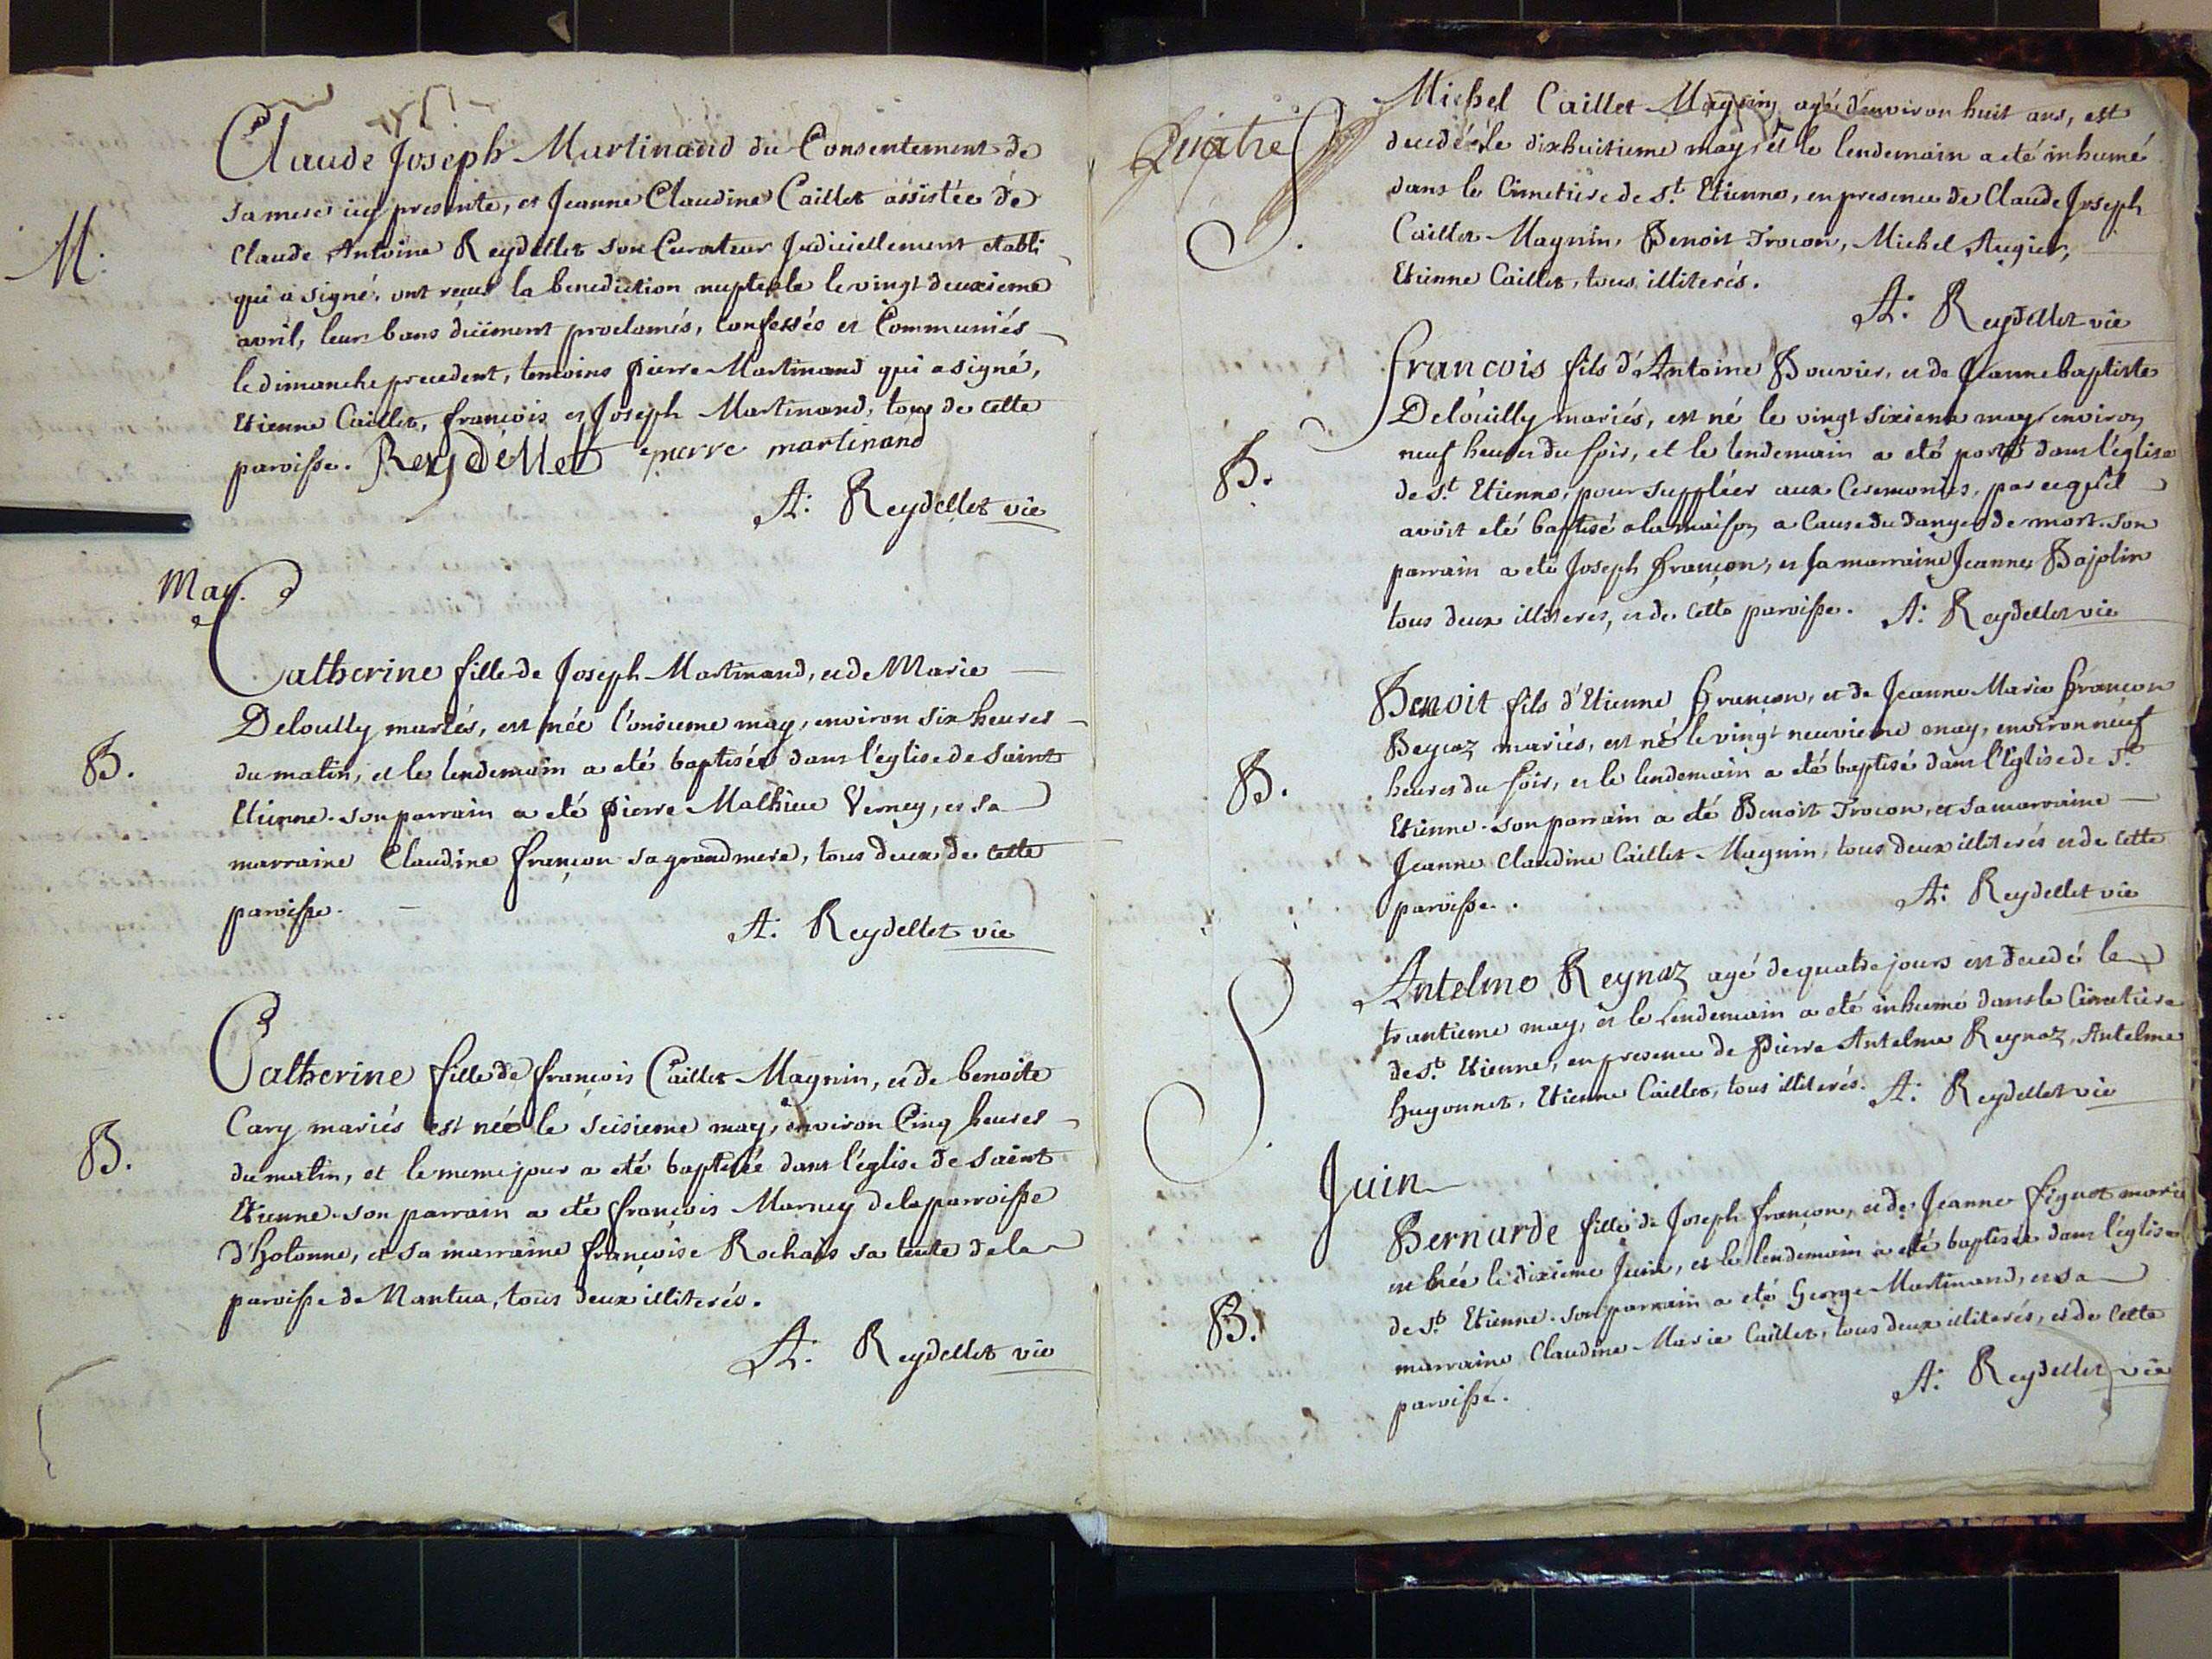 Claude Joseph Martinand du Consentement de
M.
sa mere icy presente, et Jeanne Claudine Caillet assistée de
Claude Antoine Reydellet son Curateur Judiciellement etabli
qui a signé, ont reçus la benediction nuptiale le vingt deuxieme
avril, leurs bans düement proclamés, confessés et Communiés
le dimanche precedent, temoins pierre Martinand qui a signé,
Etienne Caillet, françois et Joseph Martinand, tous de cette
paroisse. Reydellet pierre martinand
A: Reydellet vic
May.
Catherine fille de Joseph Martinand, et de Marie
Deloully mariés, est née l'onsieme may, environ six heures
B.
du matin, et le lendemain a eté baptisée dans l'église de Saint
Etienne. son parrain a eté pierre Mathieu Verney, et sa
marraine Claudine françon sa grand mere, tous deux de cette
paroisse.
A: Reydellet vic
Catherine fille de françois Caillet Magnin, et de benoite
Cary mariés est née le seisieme may, environ Cinq heures
B.
du matin, et le meme jour a eté baptisée dans l'église de Saint
Etienne. son parrain a eté françois Marney de la parroisse
d'hotonne, et sa marraine françoise Rochaix sa tente de la
paroisse de Nantua, tous deux illiterés.
A: Reydellet vic
Quatre
Michel Caillet Magnin agé d'environ huit ans, est
decedé le dixhuitieme may, et le lendemain a eté inhumé
S.
dans le Cimetiere de St. Etienne, en presence de Claude Joseph
Caillet Magnin, Benoit Trocon, Michel Augier,
Etienne Caillet, tous illiterés.
A: Reydellet vic
françois fils d'Antoine Bouvier, et de Jeanne baptiste
Delouilly mariés, est né le vingt sixieme may environ
B.
neuf heures du soir, et le lendemain a eté porté dans l'église
de St. Etienne, pour suppléer aux Ceremonies, parce qu'il
avoit eté baptisé a la maison a Cause du danger de mort. son
parrain a eté Joseph françon, et sa marraine Jeanne Bajolin
tous deux illiterés, et de cette paroisse. A: Reydellet vic
Benoit fils d'Etienne françon, et de Jeanne Marie françon
Beycaz mariés, est né le vingt neuvieme may, environ neuf
B.
heures du soir, et le lendemain a eté baptisé dans l'Eglise de St.
Etienne. son parrain a eté Benoit Trocon, et sa marraine
Jeanne Claudine Caillet Magnin, tous deux illiterés et de cette
paroisse.
A: Reydellet vic
Antelme Reynaz agé de quatre jours est decedé le
trantieme may, et le lendemain a eté inhumé dans le Cimetiere
S.
de St. Etienne, en presence de Pierre Antelme Reynaz, Antelme
hugonnet, Etienne Caillet, tous illiterés. A: Reydellet vic
Juin
Bernarde fille de Joseph françon, et de Jeanne figuet mariés
est née le dixieme Juin, et le lendemain a eté baptisée dans l'église
B.
de St. Etienne. son parrain a eté George Martinand, et sa
marraine Claudine Marie Caillet, tous deux illiterés, et de cette
paroisse.
A: Reydellet vic